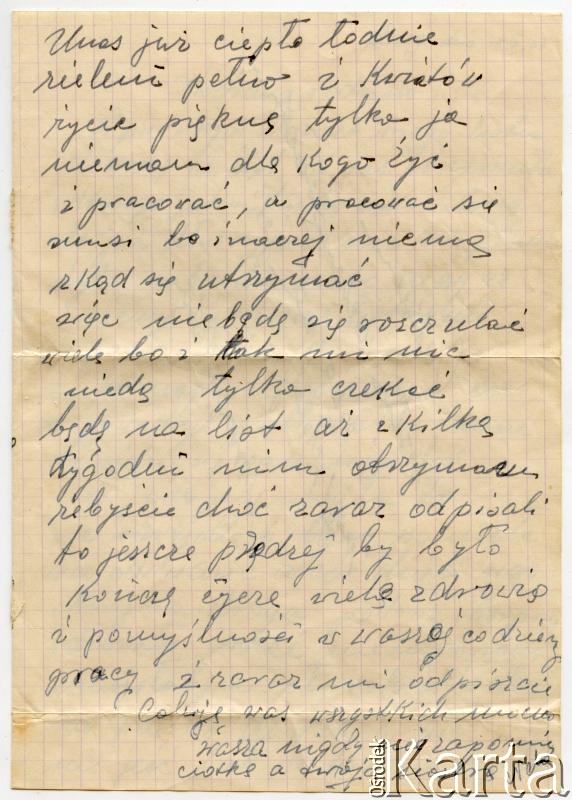 Unas już ciepło ładnie
zieleni pełno i Kwiatów
życie piękną tylko ja
niemam dla Kogo żyć
i pracować, a pracować się
musi bo inaczej niemą
zkąd się utrzymać
więc niebędę się rosczulać
wielę bo i tak mi nic
niedą tylko czekać
będę na list aż zKilką
tygodni nim otrzymam
żebyście choć zaraz odpisali
to jeszcze prędzej by było
Kończę życzę wielę zdrowią
i pomyślności w waszej codzieny
pracy i zaraz mi odpiszcie
Całuję was wszystkich mocno
wasza nigdy
ciotką a
Ośrodek
Karta